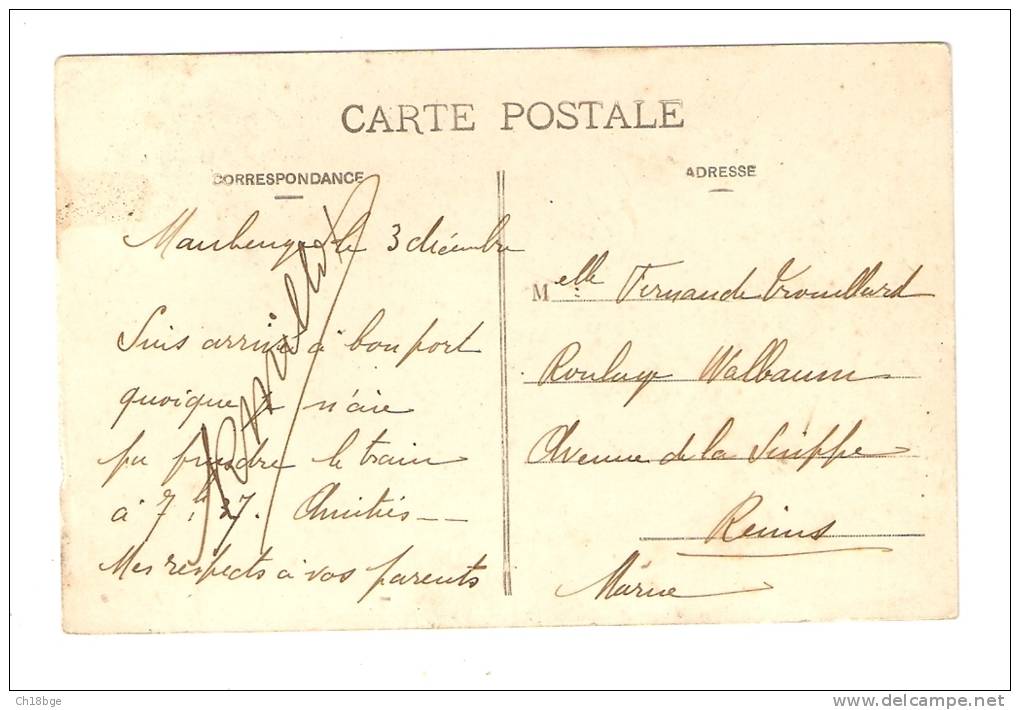 CARTE POSTALE
CORRESPONDANCE
Maubeuge le 3 décembre
Suis arrivé à bon port
quoique n'aie
pu prendre le train
à 7h 27. Amitiés
Mes respects à vos parents
ADRESSE
Melle Fernande Trouillard
Roulage Walbaum
Avenue de la Suippe
Reims
Marne
Ch18bge
www.delcampe.net